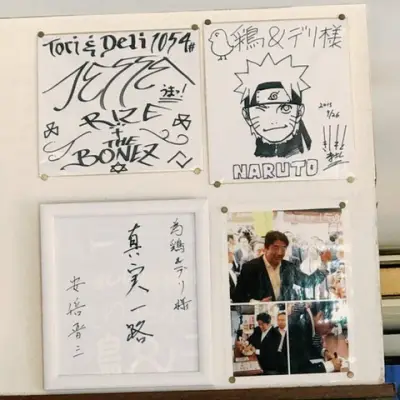 Tori & Deli 1054#
JESSE
うまい!
RIZE
+
THE
BONEZ
鶏&デリ様
NARUTO
2015
9/26
為鶏&デリ様
真実一路
安倍晋三